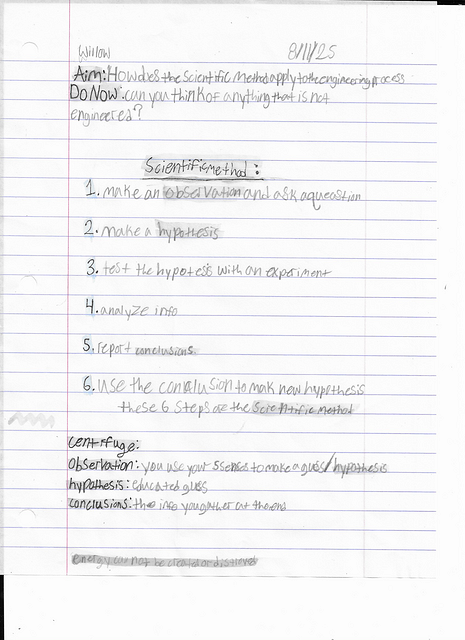 Willow 8/11/25
Aim: How does the scientific method apply to the engineering process
Do Now: can you think of anything that is not
engineered?
Scientific method:
1. make an observation and ask a queastion
2. make a hypothesis
3. test the hypotess with an experiment
4. analyze info
5. report conclusions.
6. use the conclusion to mak new hypothesis
these 6 steps are the scientific method
centrfuge:
Observation: you use your 5 senses to make a guess/hypothesis
hypothesis: educated guss
conclusions: the info you gather at the end
energy can not be created or distroyed